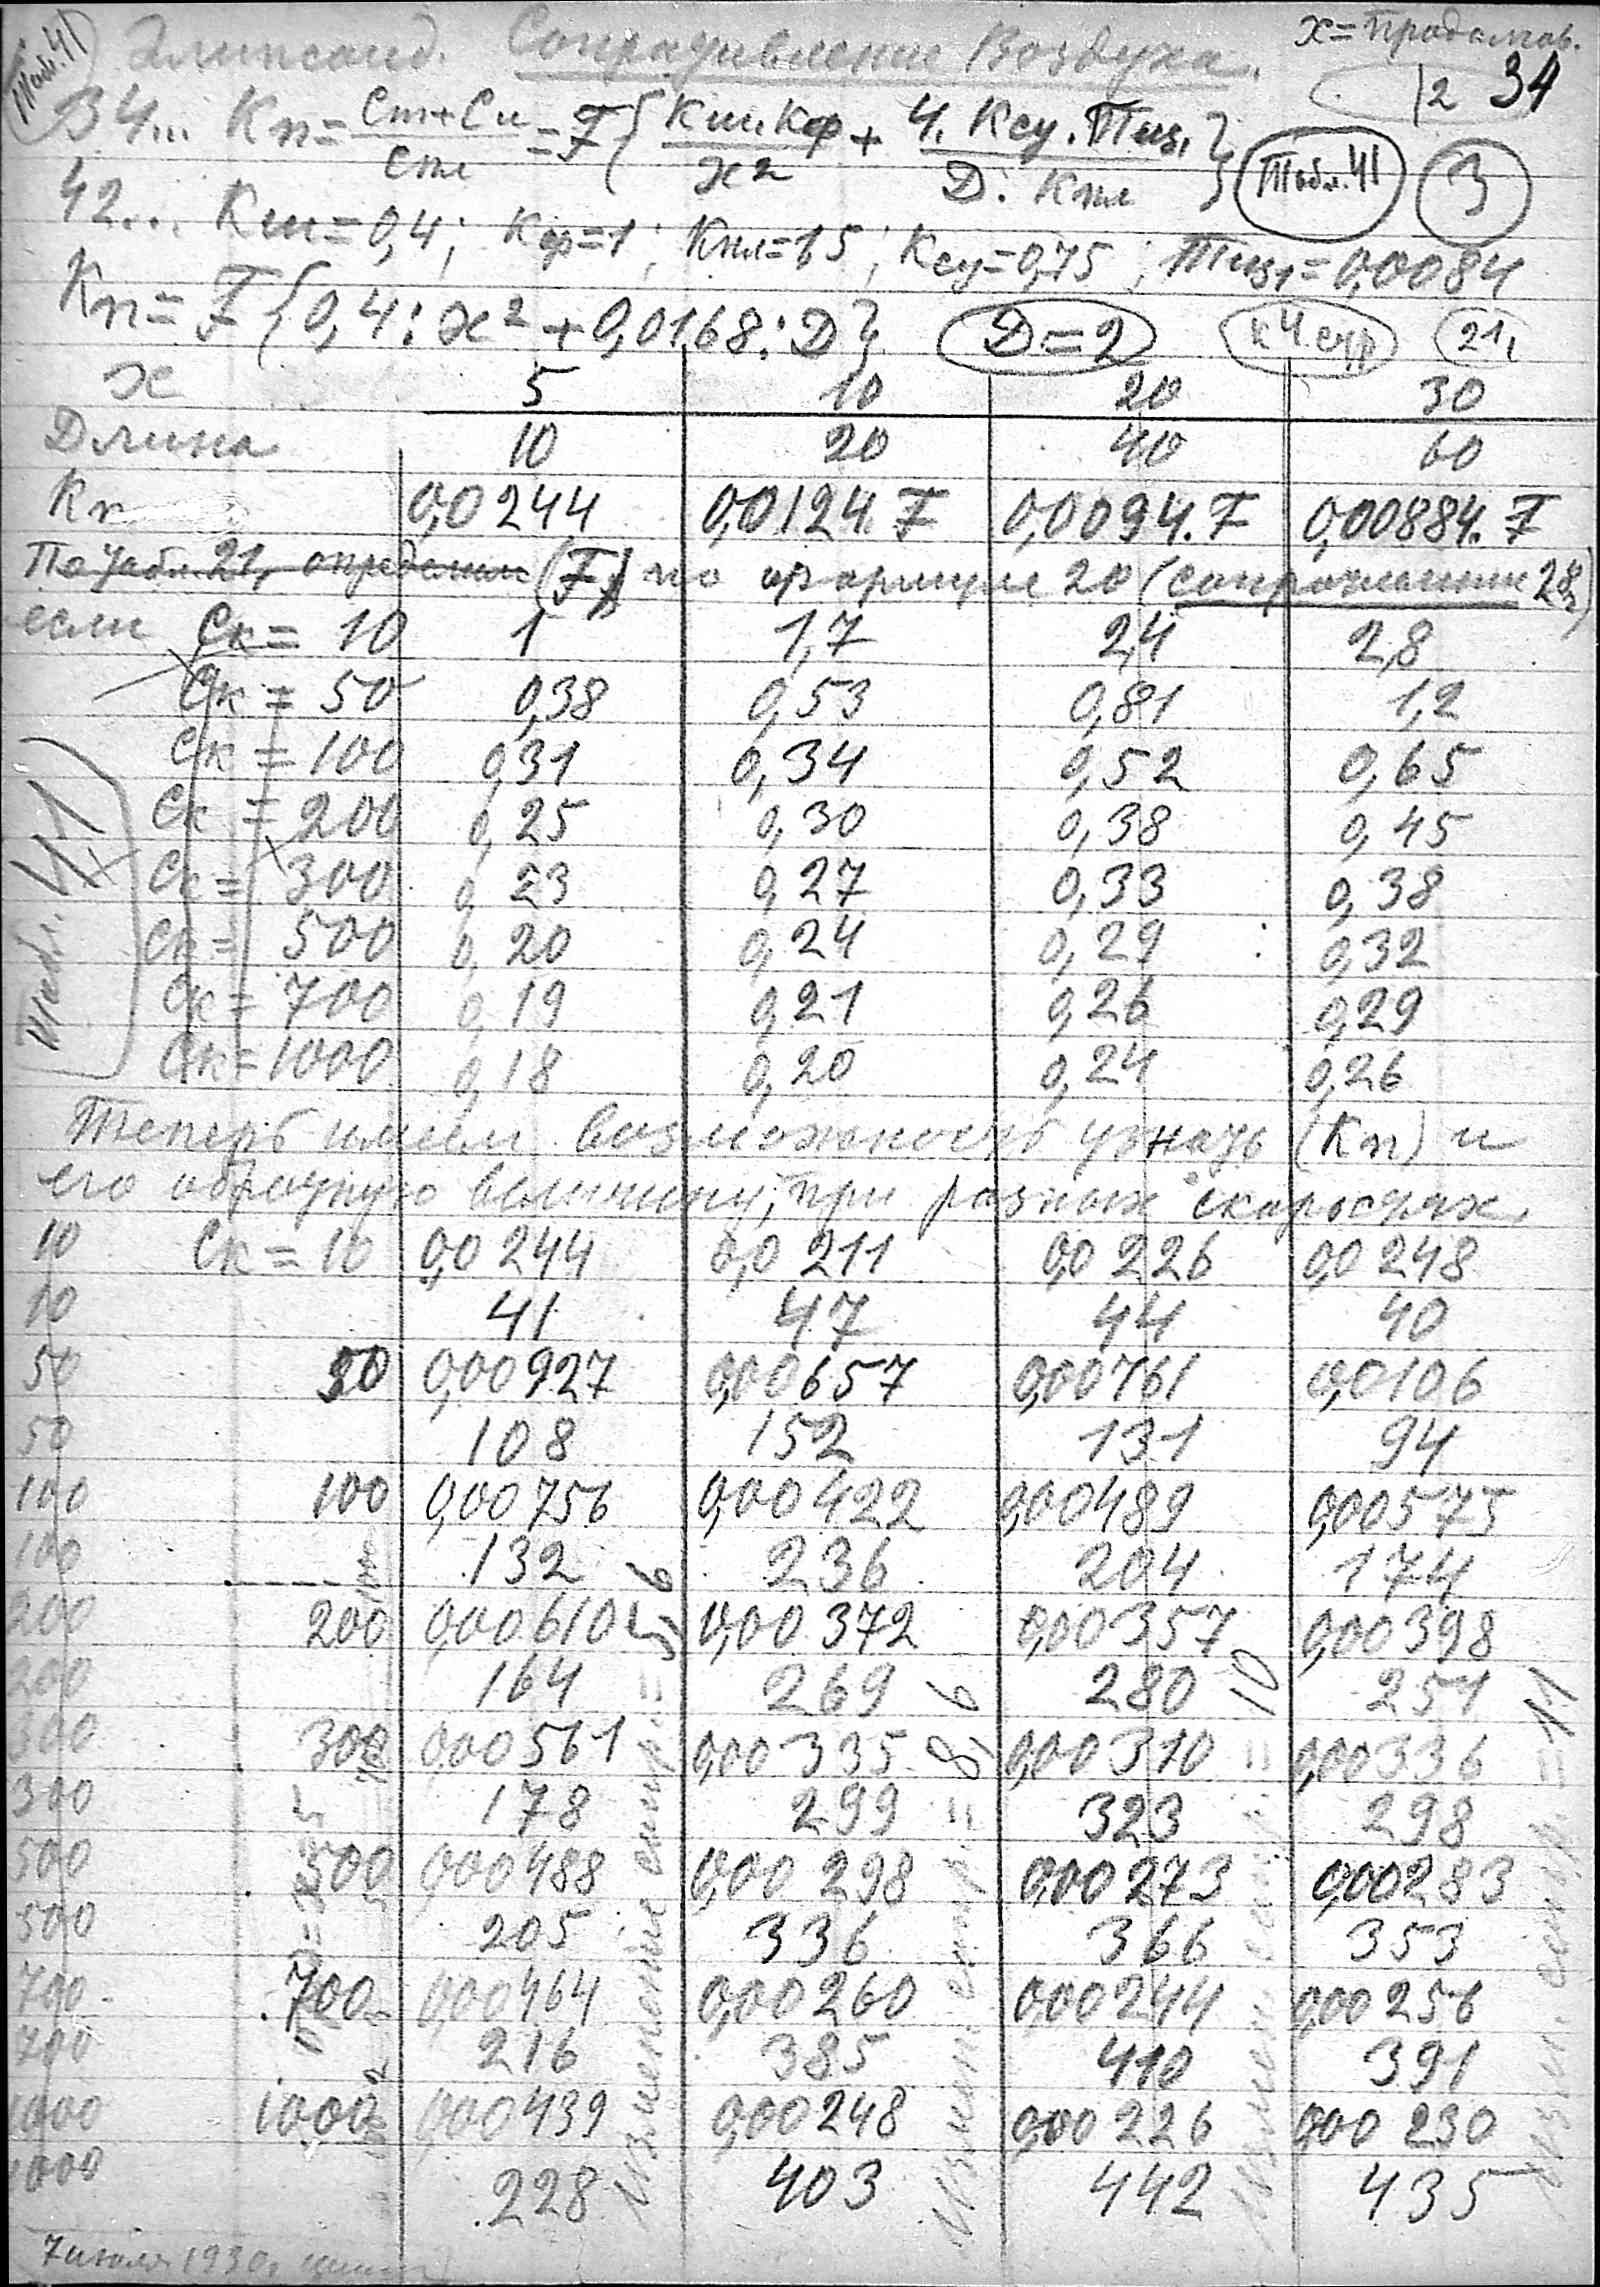 Табл. 41) Элипсоид. Сопрадивление Воздуха. x=продолгов.
12 34
34... Кп = Ст+Си / Спл = F { Кш.Кф / x2 + 4. Ксу. Тщ1 / D. Кпл } Табл. 41 3
42... Кш=0,4; Кф=1; Кпл=1,5; Ксу=0,75; Тщ1=0,0084
Кп= F {0,4:x² + 0,0168:D} D=2 к 4 стр 21,
x 5 10 20 30
Длина 10 20 40 60
Кп 0,0244 0,0124.F 0,0094.F 0,00884.F
По табл. 21, определим (F) по формуле 20 (сопротивления 28)
если Ск= 10 1 1,7 2,4 2,8
Ск = 50 0,38 0,53 0,81 1,2
Ск = 100 0,31 0,34 0,52 0,65
Ск = 200 0,25 0,30 0,38 0,45
Ск = 300 0,23 0,27 0,33 0,38
Ск = 500 0,20 0,24 0,29 0,32
Ск = 700 0,19 0,21 0,26 0,29
Ск = 1000 0,18 0,20 0,24 0,26
Табл. 41)
Теперь имеем возможность узнать (Кп) и
его обратную величину, при разных скоростях.
10 Ск = 10 0,0244 0,0211 0,0226 0,0248
10 41 47 44 40
50 50 0,00927 0,00657 0,00761 0,0106
50 108 152 131 94
100 100 0,00756 0,00422 0,00489 0,00575
100 132 236 204 174
200 200 0,00610 0,00372 0,00357 0,00398
200 164 269 280 251
300 300 0,00561 0,00335 0,00310 0,00336
300 178 299 323 298
500 500 0,00488 0,00298 0,00273 0,00283
500 205 336 366 353
700 700 0,00464 0,00260 0,00244 0,00256
700 216 385 410 391
1000 1000 0,00439 0,00248 0,00226 0,00230
1000 228 403 442 435
= 5,6
= 8,6
= 10
= 11
7 июля 1930,